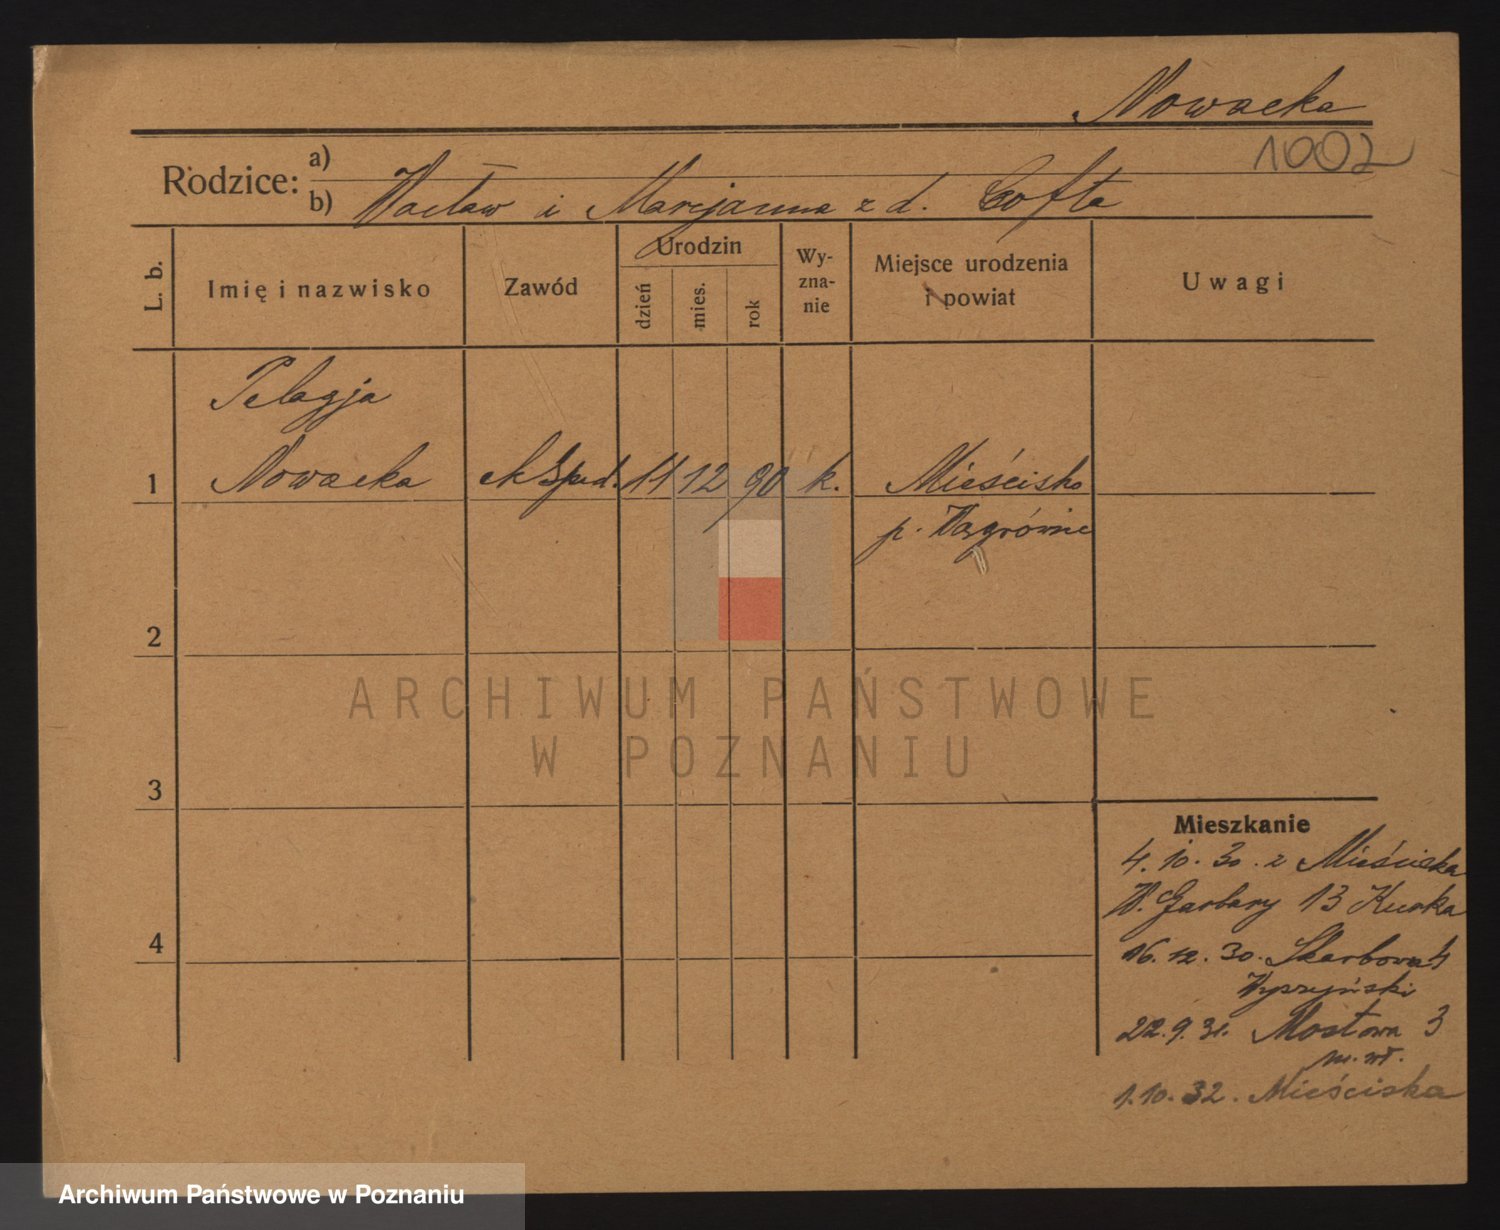 Nowacka
1002
Rodzice:
a)
b) Wacław i Marjanna z d. Gofta
L. b.
Imię i nazwisko
Zawód
Urodzin
dzień
mies.
rok
Wy-
zna-
nie
Miejsce urodzenia
i powiat
Uwagi
Pelagja
1 Nowacka eksped. 11 12 90 k. Mieścisko
p. Wągrówiec
2
ARCHIWUM PAŃSTWOWE
W POZNANIU
3
4
Mieszkanie
4.10.30. z Mieściska
W. Garbary 13 Kurka
16.12.30. Skarbowa
22.9.31. Mostowa 3
m. wł.
1.10.32. Mieściska
Archiwum Państwowe w Poznaniu